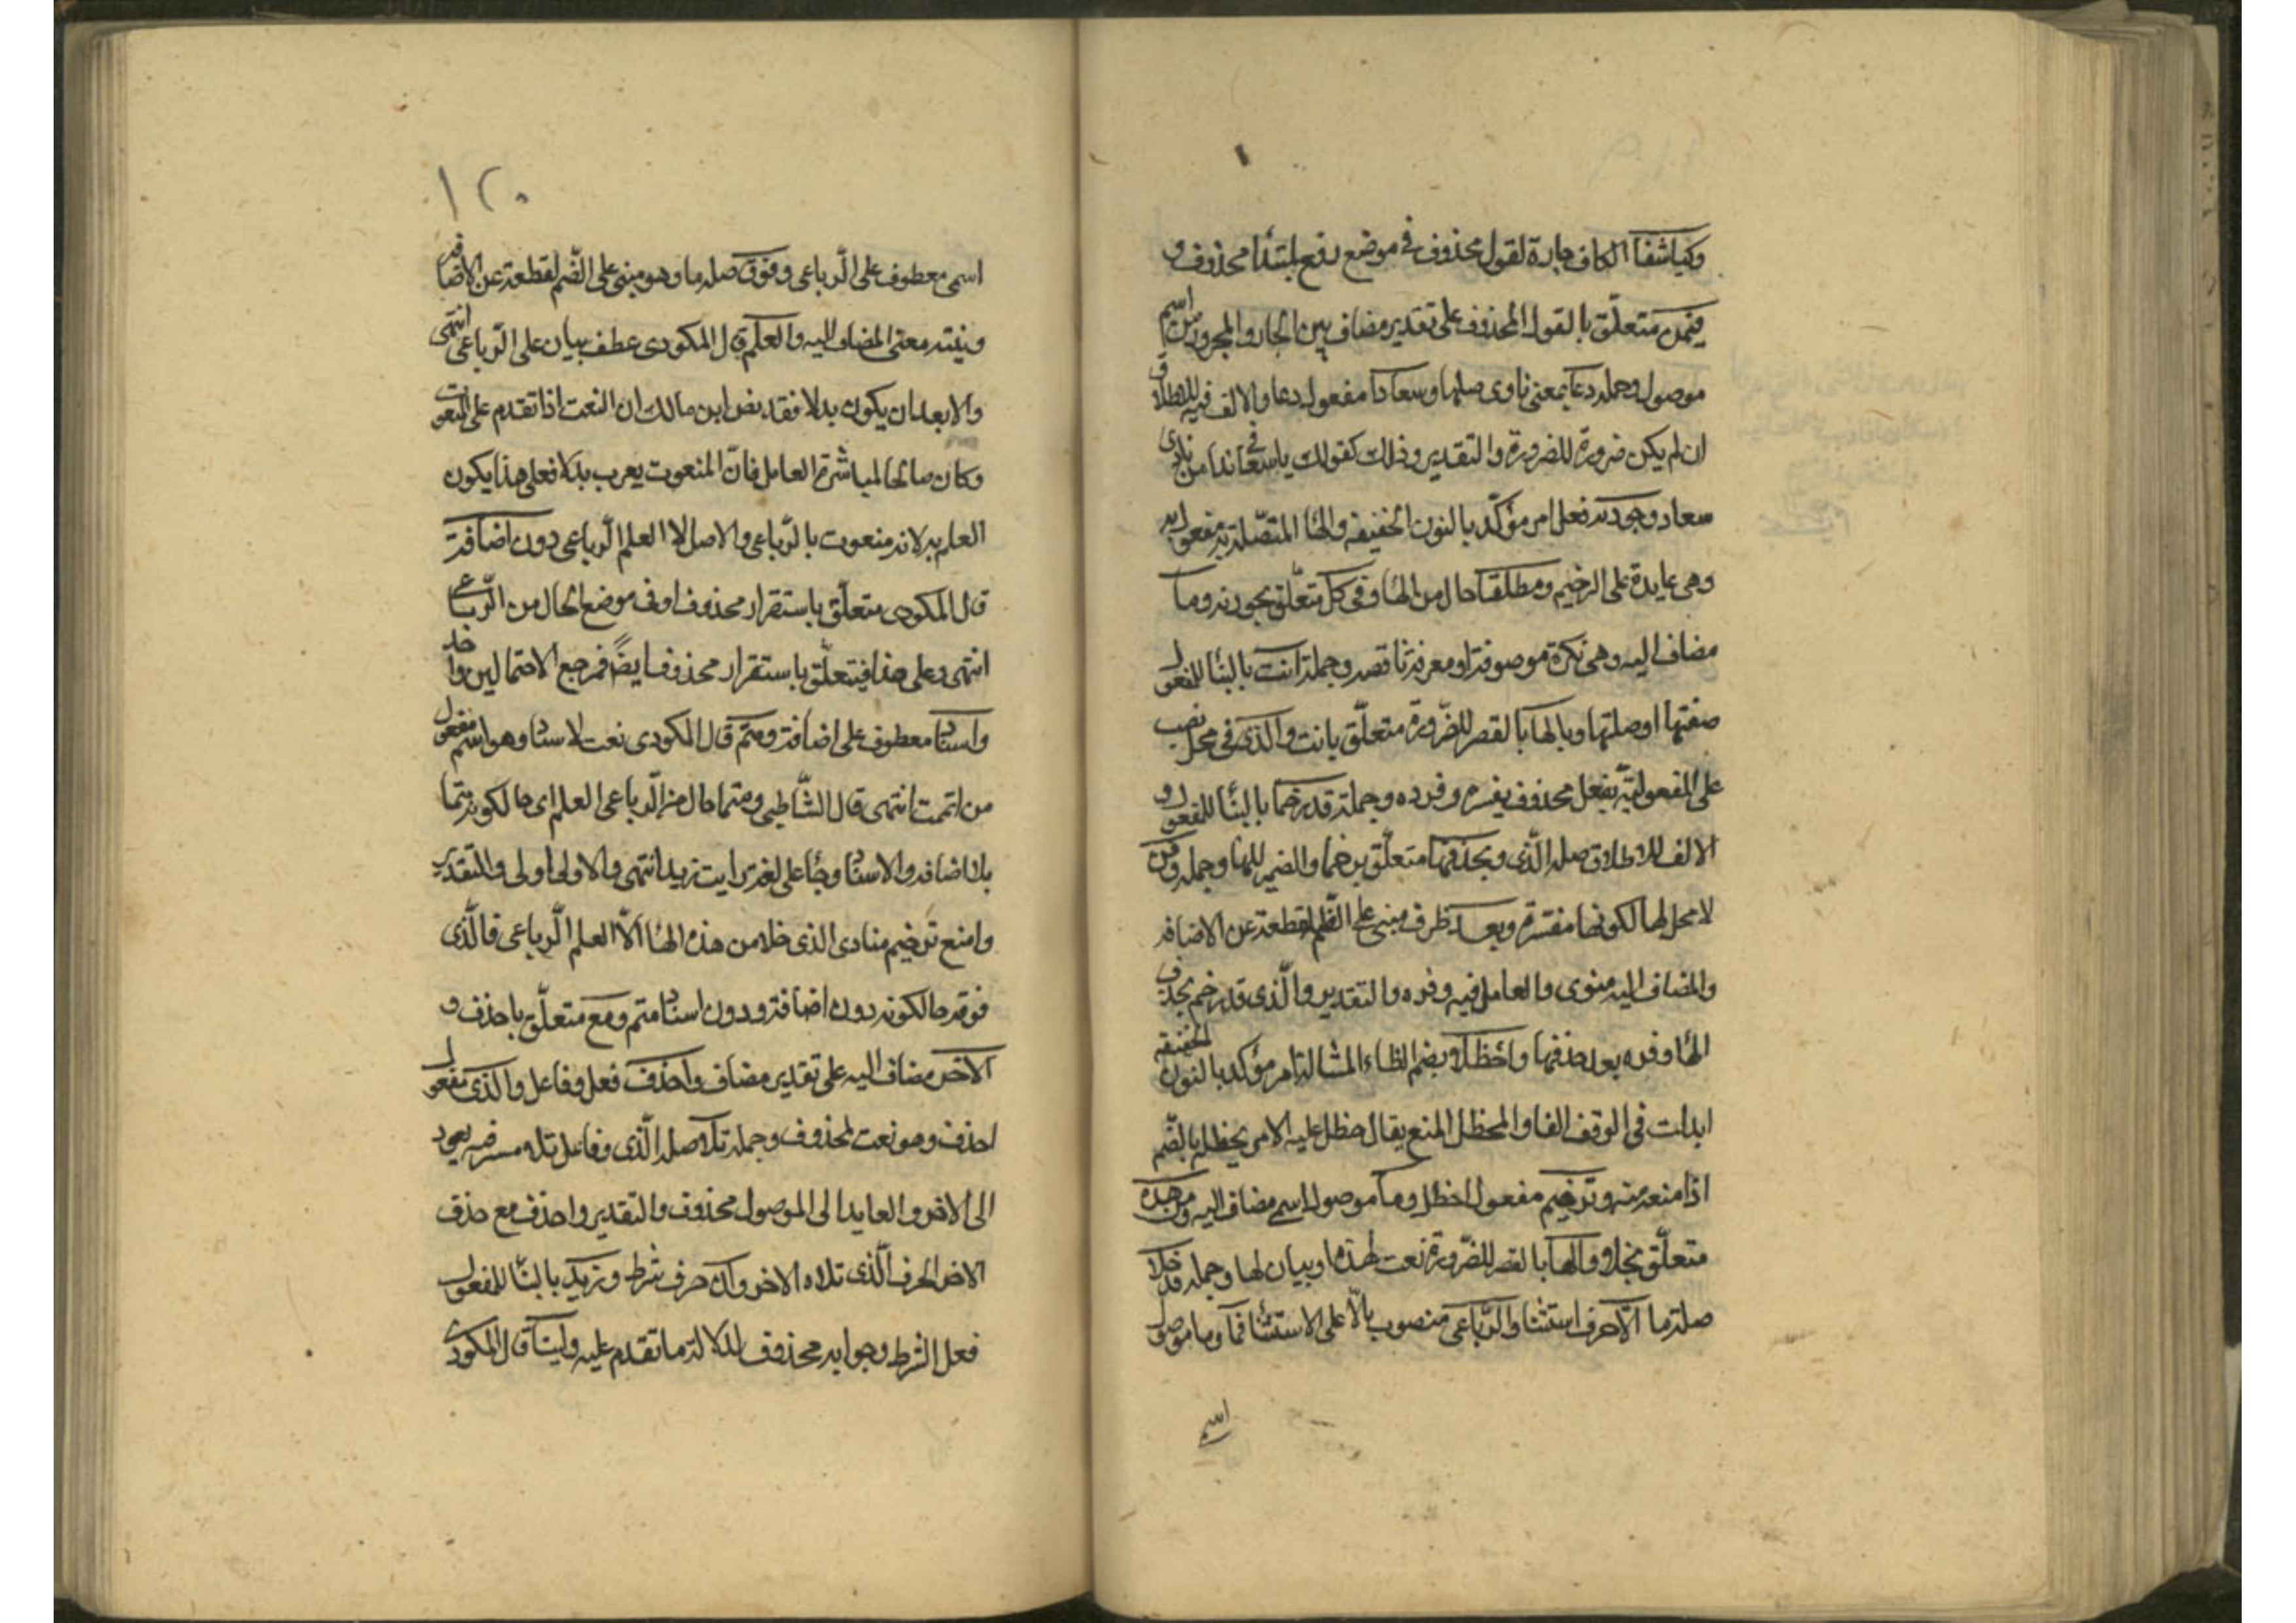 وكياشفا الكاف جارة لقول محذوف في موضع رفع بلبتدا محذوف و
فيمن متعلق بالقول المحذوف على تقدير مضاف بين الجار والمجرور من اسم
موصول وجملة دعا بمعنى نادى صلتها وسعادا مفعول دعا والالف فيه للاطلاق
ان لم يكن ضرورة للضرورة والتقدير وذلك كقولك ياسعا في ندا من نادى
سعاد وجودنه فعل امر مؤكد بالنون الخفيفة والها المتصلة به مفعول به
وهي عايدة على الرخيم ومطلقا حال من الها وفي كل متعلق بجوزنه وما
مضاف اليه وهي نكرة موصوفة او معرفة ناقصه وجملة انث بالبنا للمفعول
صفتها او صلتها وبالها بالقصر للضرورة متعلق بانث والذي في محل نصب
على المفعولية بفعل محذوف يفسره وفره وجملة قد رخما بالبنا للمفعول و
الالف للاطلاق صلة الذي وبحذفها متعلق برخما والضمير للها وجملة وفره
لا محل لها لكونها مفسرة وبعد ظرف مبني على الضم لقطعه عن الاضافه
والمضاف اليه منوى والعامل فيه وفره والتقدير والذي قد رخم بحذف
الها وفره بعد حذفها واحظلا وبضم الظاء المشالة امر مؤكد بالنون الخفيفة
ابدلت في الوقف الفا والمحظل المنع يقال حظل عليه الامر يحظله بالضم
اذا منعه منه وترخيم مفعول احظل وما موصول اسمي مضاف اليه ومن هذه
متعلق بخلا والها بالقصر للضرورة نعت لهذه او بيان لها وجملة قد خلا
صلة ما الا حرف استثنا والرباعي منصوب بالا على الاستثنا فما وما موصول
اسمي
١٢٠
اسمي معطوف على الرباعي وفوق صلة ما وهو مبني على الضم لقطعه عن الاضافه
ونيته معنى المضاف اليه والعلم قال المكودى عطف بيان على الرباعي انتهى
والابعد ان يكون بدلا فقد نص ابن مالك ان النعت اذا تقدم على المنعوت
وكان صالحا لمباشرة العامل فان المنعوت يعرب بدلا فعلى هذا يكون
العلم بدلا نه منعوت بالرباعي والاصل الا العلم الرباعي دون اضافة
قال المكودى متعلق باستقرار محذوف او في موضع الحال من الرباعي
انتهى وعلى هذا فيتعلق باستقرار محذوف ايضا فمرجع الاحتمالين واحد
واسناد معطوف على اضافة ومتم قال المكودى نعت لاسناد وهو اسم مفعول
من اتممت انتهى قال الشاطبي ومتما حال من الرباعي العلم اى حالكونه متما
بلا اضافه والاسناد وجا على لغة رايت زيد انتهى والاولى اولى والتقدير
وامنع ترخيم منادى الذي خلا من هذه الها الا العلم الرباعي فالذي
فوقه حالكونه دون اضافة ودون اسناد متم ومع متعلق باحذف و
الاخر مضاف اليه على تقدير مضاف واحذف فعل وفاعل والذي مفعول
احذف وهو نعت لمحذوف وجملة تلا صلة الذي وفاعل تلا مستتر فيه يعود
الى الاخر والعايد الى الموصول محذوف والتقدير واحذف مع حذف
الاخر الحرف الذي تلاه الاخر وان حرف شرط وزيد بالبنا للمفعول
فعل الشرط وجوابه محذوف لدلالة ما تقدم عليه ولينا قال المكودى